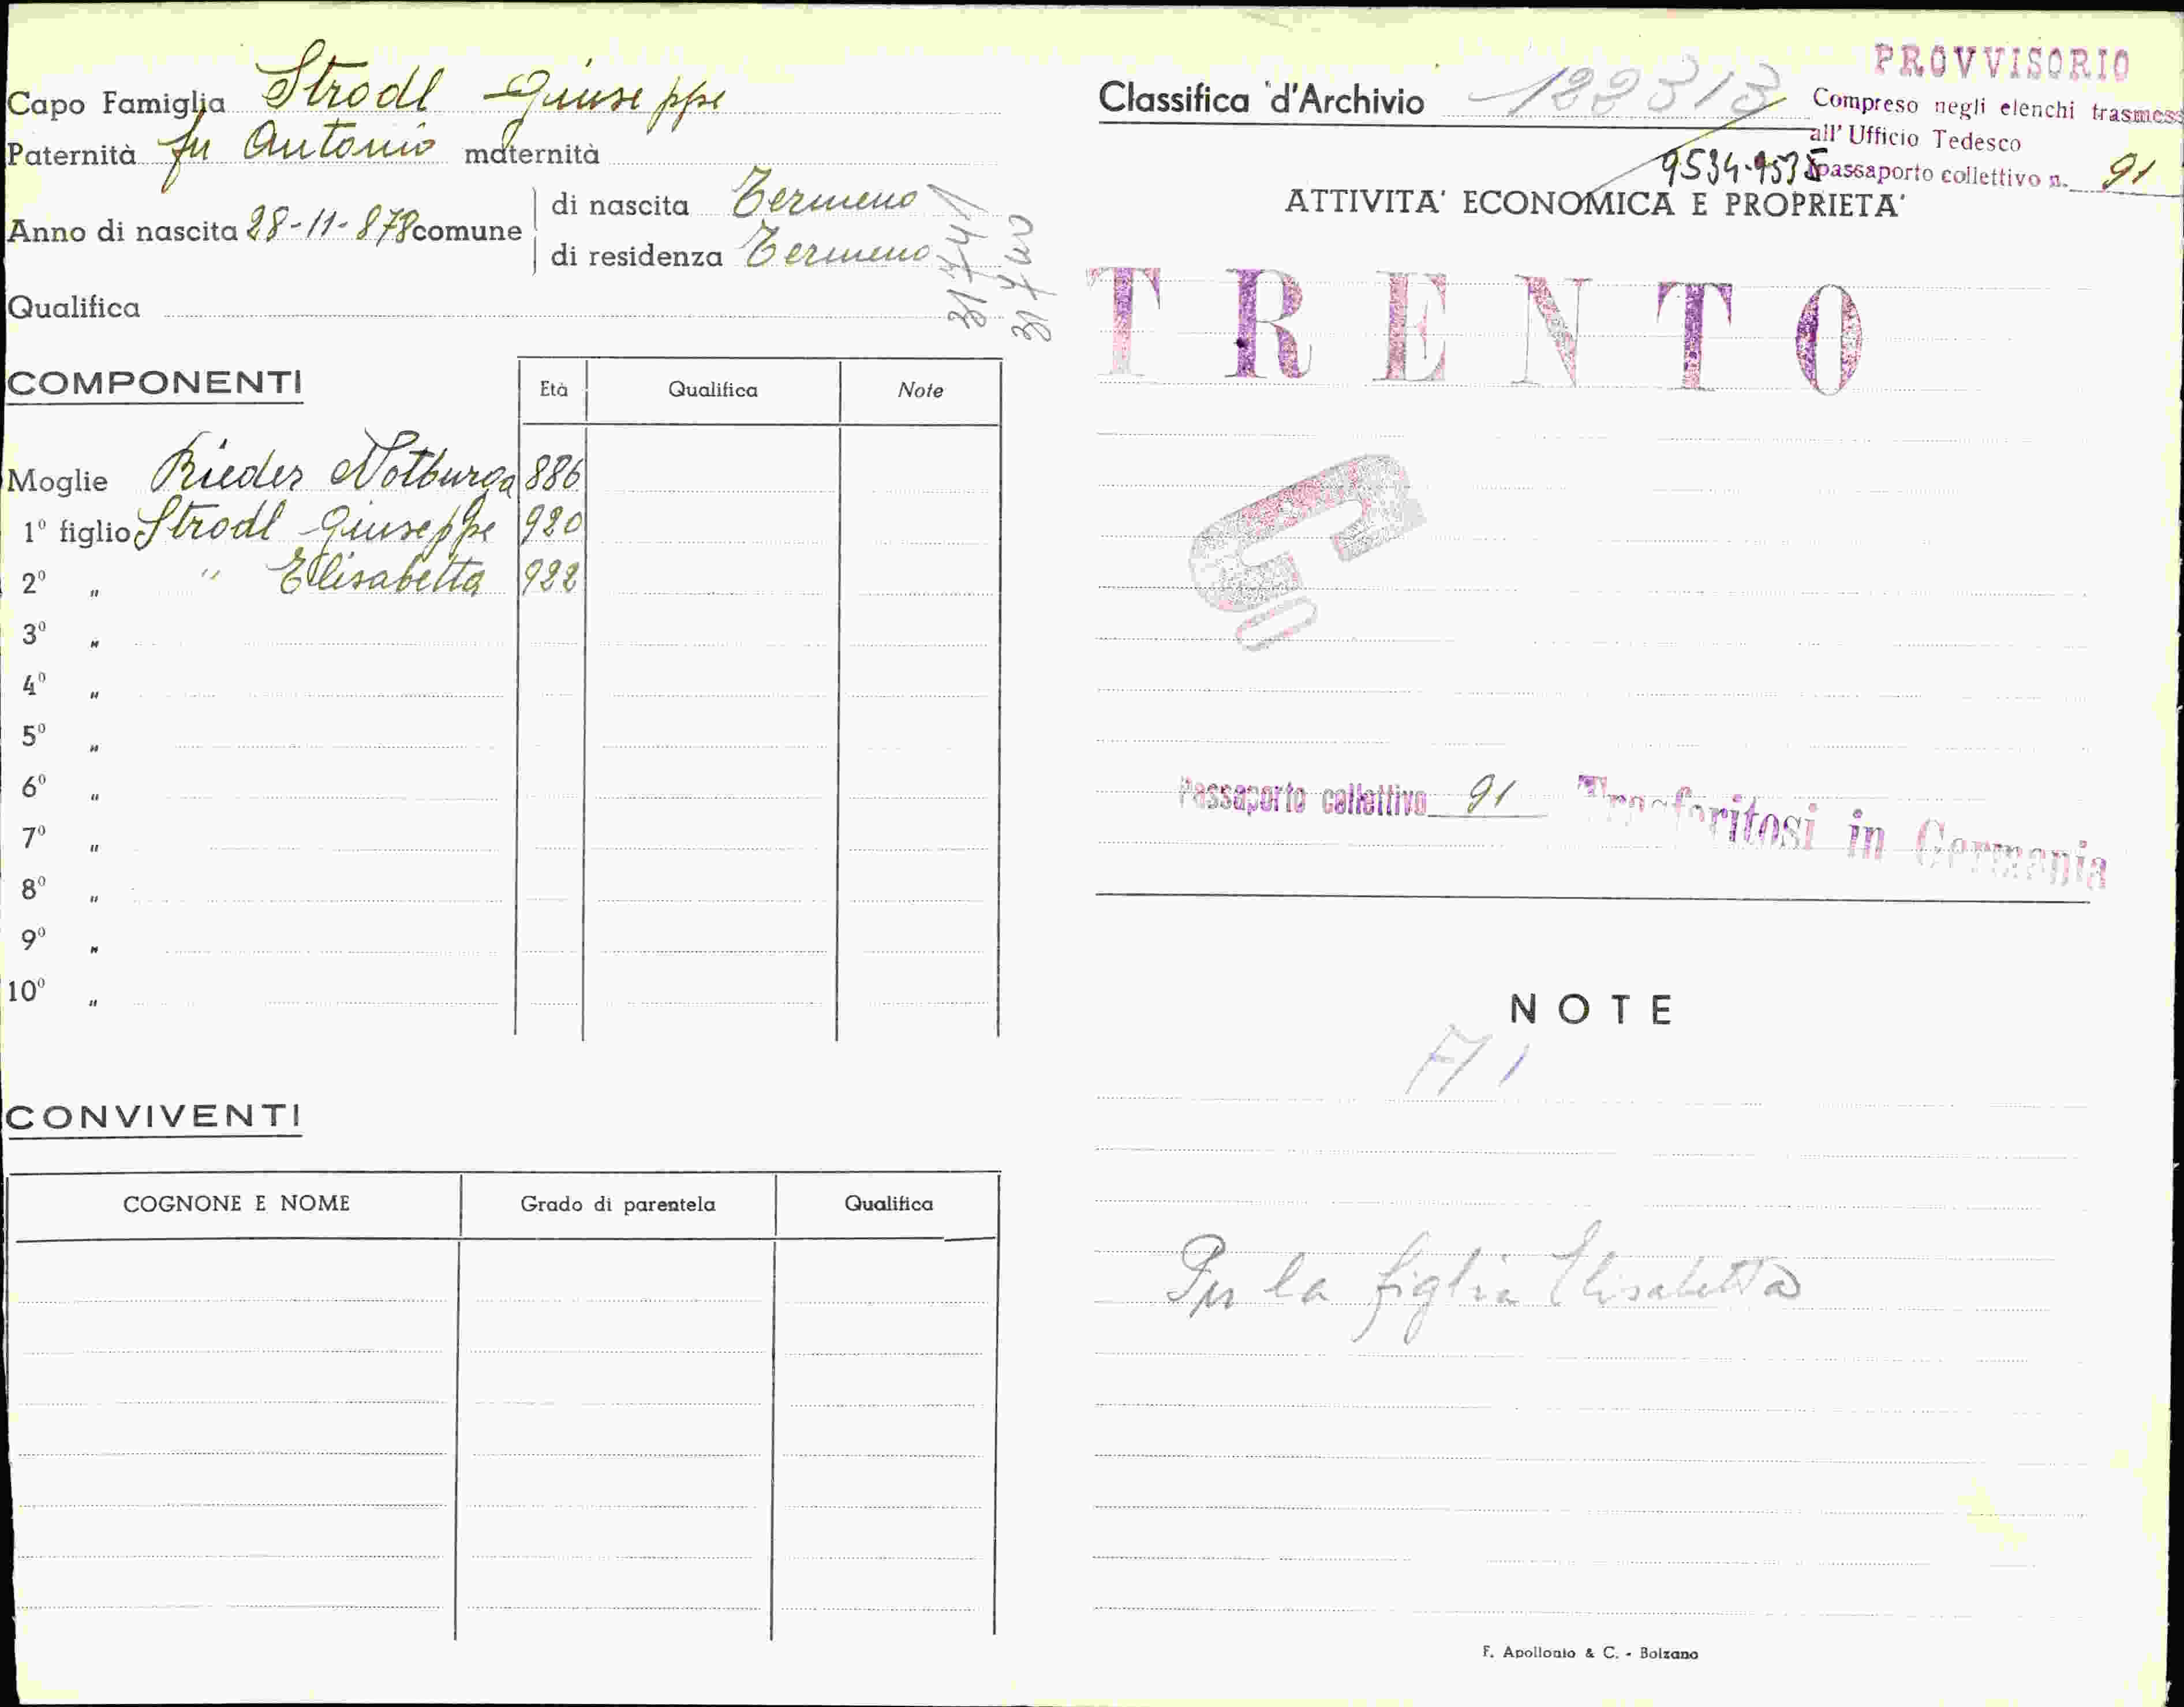 Capo Famiglia Strodl Giuseppe
Paternità fu Antonio maternità
Anno di nascita 28-11-878 comune
di nascita Termeno
di residenza Termeno
31741
31740
Qualifica
COMPONENTI
Età Qualifica Note
Moglie Rieder Notburga 886
1º figlio Strodl Giuseppe 920
2º „ " Elisabetta 922
3º „
4º „
5º „
6º „
7º „
8º „
9º „
10º „
CONVIVENTI
COGNONE E NOME Grado di parentela Qualifica
PROVVISORIO
Classifica d'Archivio 122313
Compreso negli elenchi trasmess
all' Ufficio Tedesco
9534-9535 passaporto collettivo n. 91
ATTIVITA' ECONOMICA E PROPRIETA'
TRENTO
Passaporto collettivo 91 Trasferitosi in Germania
NOTE
Per la figlia Elisabetta
F. Apollonio & C. - Bolzano